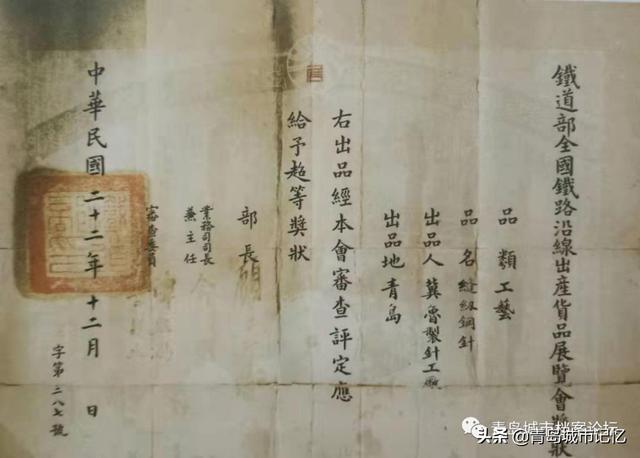 鐵道部全國鐵路沿線出產貨品展覽會獎狀
品類工藝
品名縫紉鋼針
出品人冀魯製針工廠
出品地青島
右出品經本會審查評定應
給予超等獎狀
部長
業務司司長
兼主任
審查委員
中華民國二十二年十二月 日
字第二八七號
青岛城市档案论坛
头条@青岛城市记忆